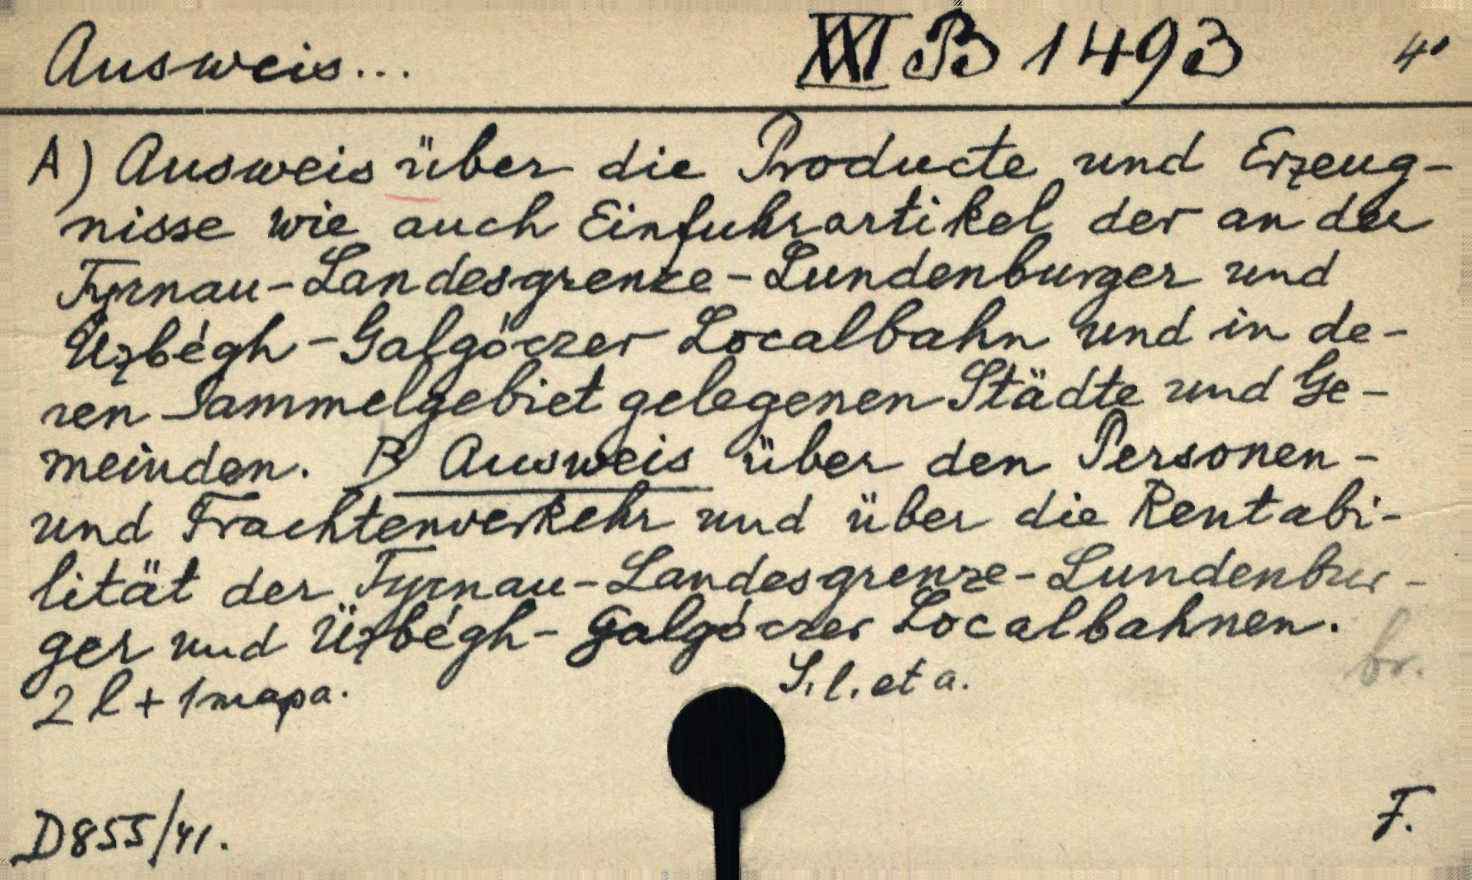 Ausweis... XXI B 1493 4°
A) Ausweis über die Producte und Erzeug-
nisse wie auch Einfuhrartikel der an der
Tyrnau-Landesgrenze-Lundenburger und
Üzbégh-Galgóczer Localbahn und in de-
ren Sammelgebiet gelegenen Städte und Ge-
meinden. B) Ausweis über den Personen-
und Frachtenverkehr und über die Rentabi-
lität der Tyrnau-Landesgrenze-Lundenbur-
ger und Üzbégh-Galgóczer Localbahnen.
2 l + 1 mapa. S. l. et a. br.
D855/41. F.